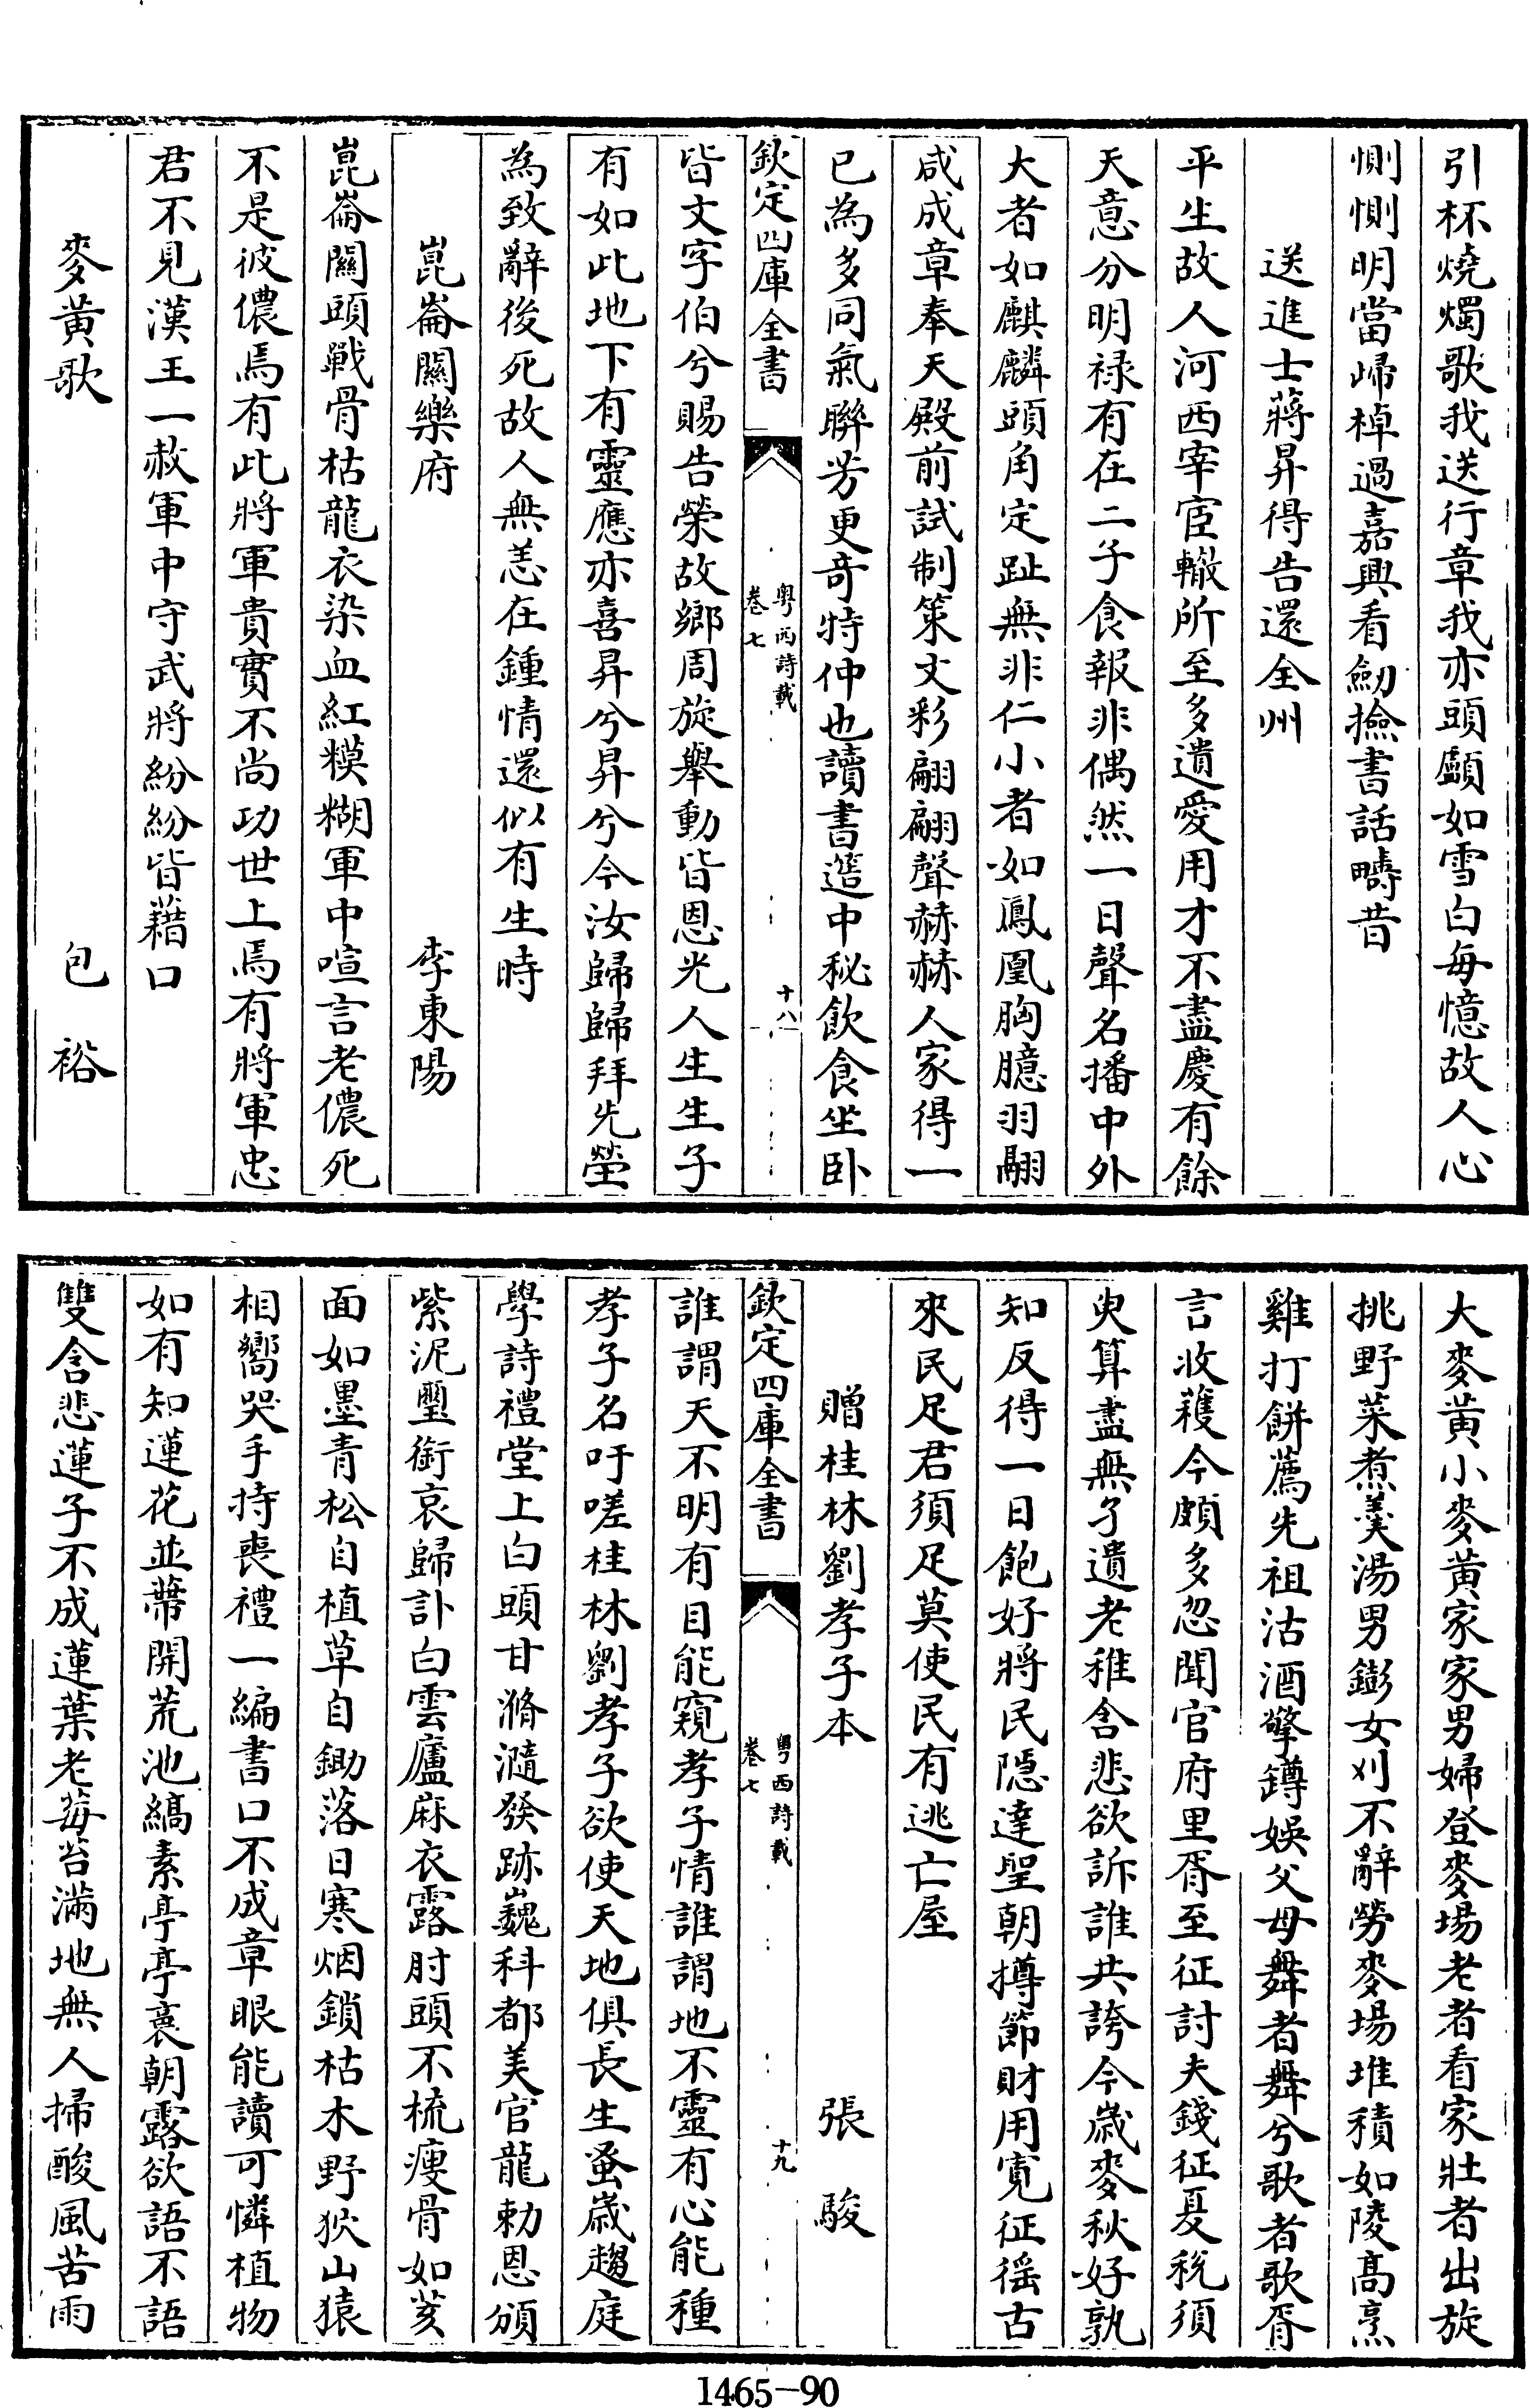 引杯燒燭歌我送行章我亦頭顱如雪白每憶故人心
惻惻明當歸棹過嘉興看劒撿書話疇昔
送進士蔣昇得告還全州
平生故人河西宰宦轍所至多遺愛用才不盡慶有餘
天意分明禄有在二子食報非偶然一日聲名播中外
大者如麒麟頭角定趾無非仁小者如鳳凰胸臆羽翮
咸成章奉天殿前試制策文彩翩翩聲赫赫人家得一
已為多同氣聯芳更奇特仲也讀書造中秘飲食坐卧
欽定四庫全書
粤西詩載
卷七
十八
皆文字伯兮賜告榮故鄉周旋舉動皆恩光人生生子
有如此地下有靈應亦喜昇兮昇兮今汝歸歸拜先塋
為致辭後死故人無恙在鍾情還似有生時
崑崙關樂府
李東陽
崑崙關頭戰骨枯龍衣染血紅糢糊軍中喧言老儂死
不是彼儂焉有此將軍貴實不尚功世上焉有將軍忠
君不見漢王一赦軍中守武將紛紛皆藉口
麥黄歌
包裕
大麥黄小麥黄家家男婦登麥場老者看家壯者出旋
挑野菜煮羹湯男鋤女刈不辭勞麥場堆積如陵高烹
雞打餅薦先祖沽酒擎罇娛父母舞者舞兮歌者歌胥
言收穫今頗多忽聞官府里胥至征討夫錢征夏税須
臾算盡無孑遺老稚含悲欲訴誰共誇今歲麥秋好孰
知反得一日飽好將民隱達聖朝撙節財用寛征徭古
來民足君須足莫使民有逃亡屋
贈桂林劉孝子本
張駿
欽定四庫全書
粤西詩載
卷七
十九
誰謂天不明有目能窺孝子情誰謂地不靈有心能種
孝子名吁嗟桂林劉孝子欲使天地俱長生蚤歲趨庭
學詩禮堂上白頭甘滫瀡發跡巍科都美官龍勅恩頒
紫泥璽銜哀歸訃白雲廬麻衣露肘頭不梳瘦骨如荄
面如墨青松自植草自鋤落日寒烟鎖枯木野狄山猿
相嚮哭手持喪禮一編書口不成章眼能讀可憐植物
如有知蓮花並蔕開荒池縞素亭亭裛朝露欲語不語
雙含悲蓮子不成蓮葉老莓苔滿地無人掃酸風苦雨
1465-90